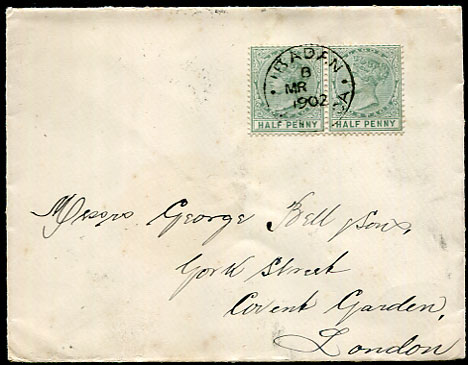 IBADAN
B
MR
1902
HALF PENNY HALF PENNY
Messrs George Bell & Sons,
York Street
Covent Garden,
London